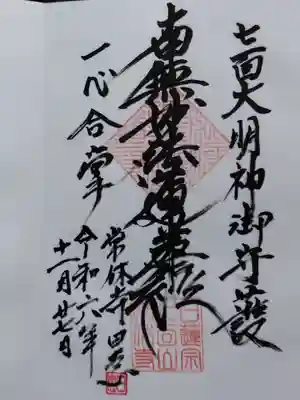 七面大明神御守護
南無妙法蓮華経
一心合掌
常休寺
令和六年
十一月廿七日
日蓮宗